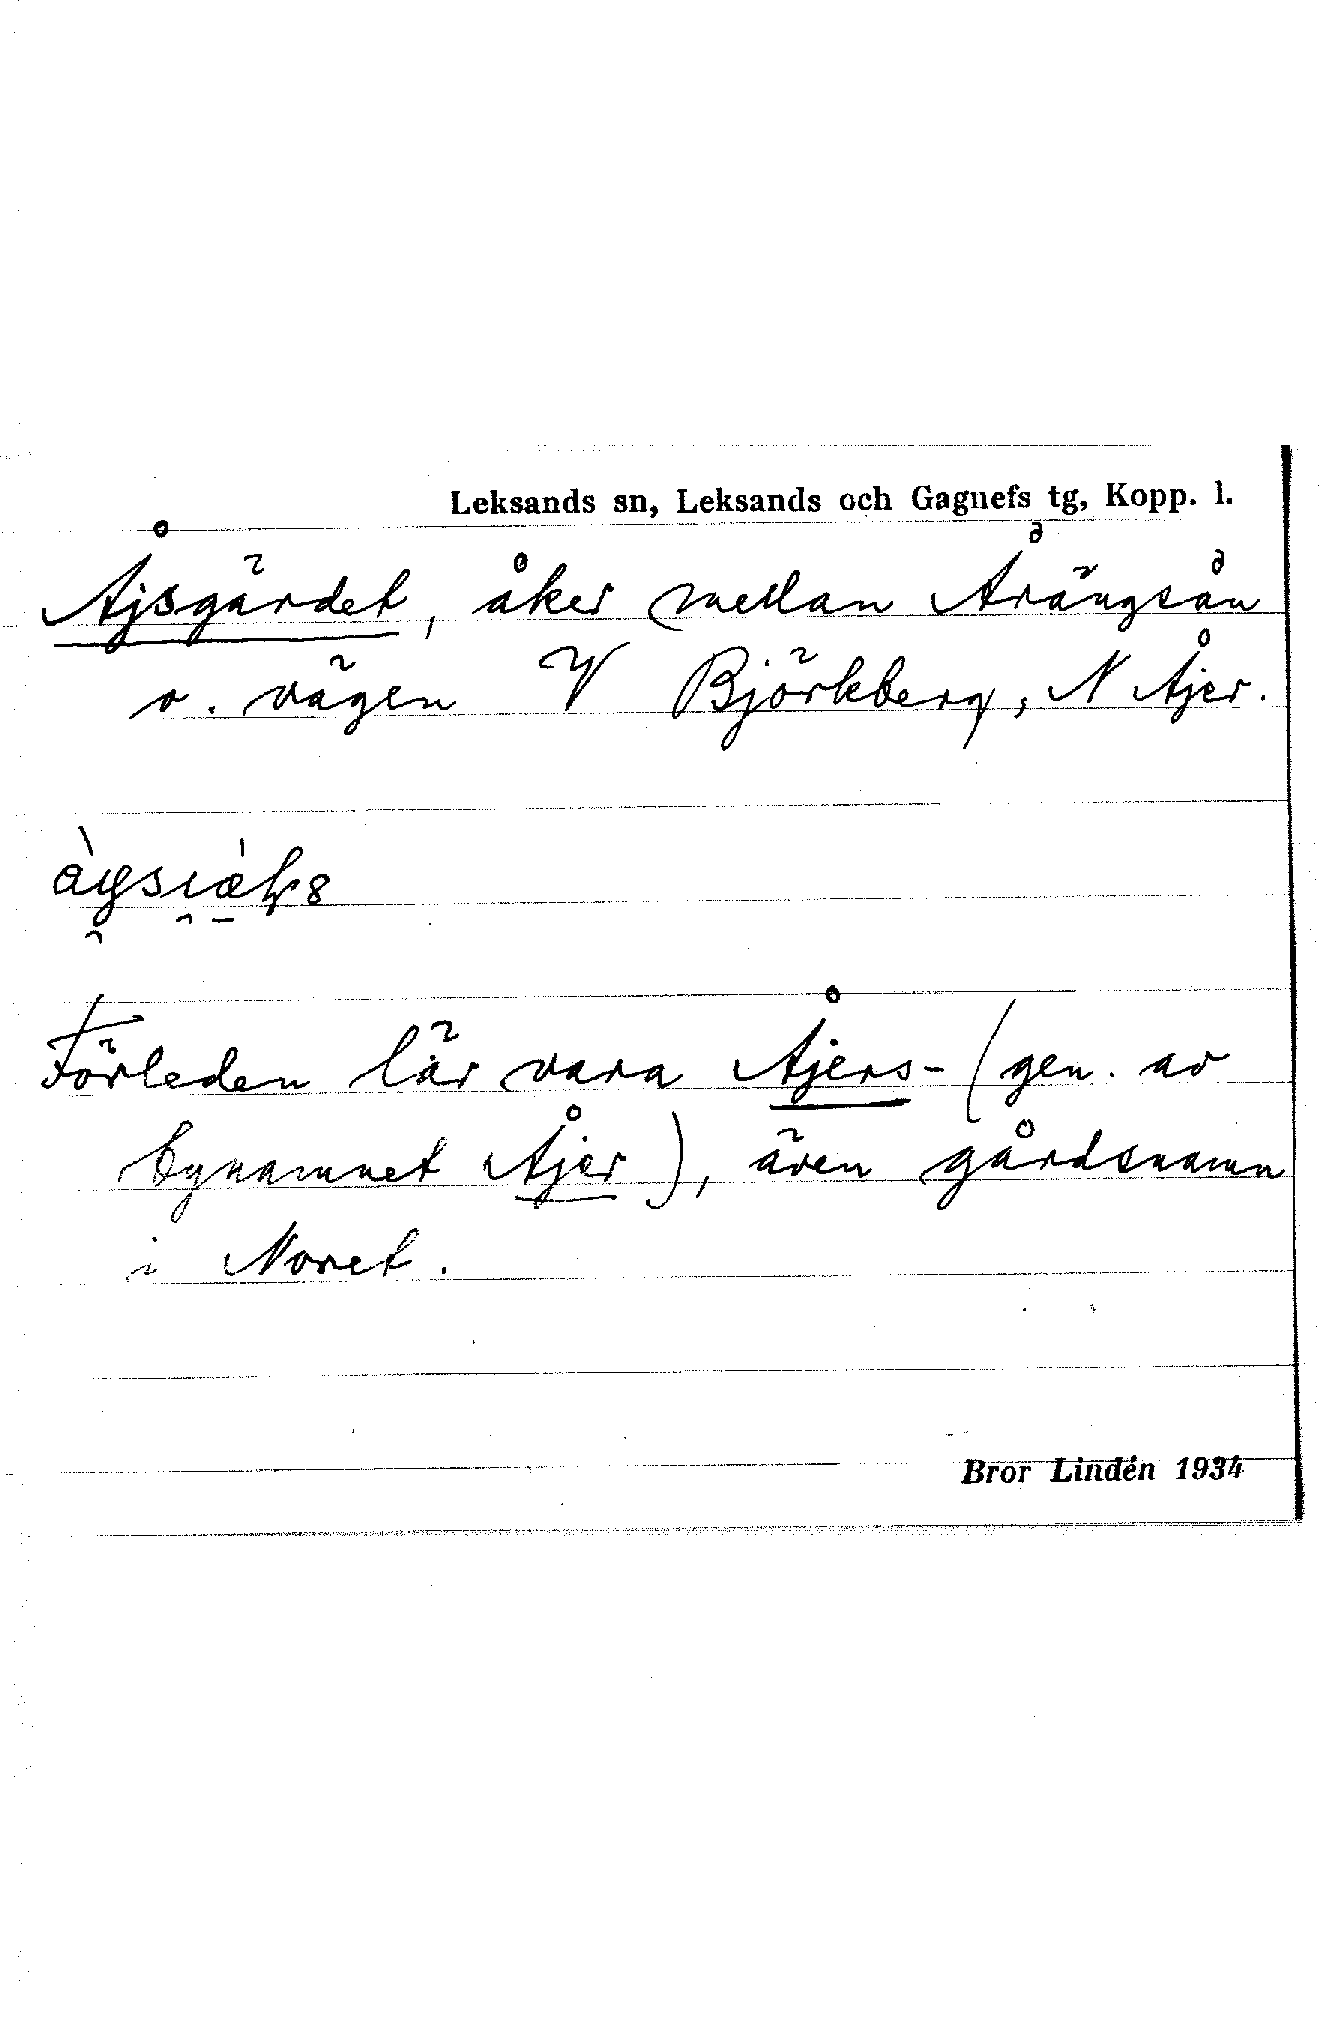 Leksands sn, Leksands och Gagnefs tg, Kopp. l.
Åjsgärdet, åker mellan Årängsån
o. vägen V Björkberg, N Åjer.
Förleden lär vara Åjers- (gen. av
bynamnet Åjer), även gårdsnamn
i Noret.
Bror Lindén 1934